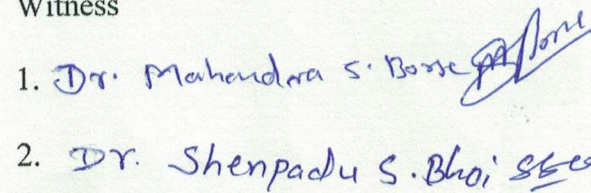 Witness
1. Dr. Mahendra S. Borse
2. Dr. Shenpadu S. Bhoi